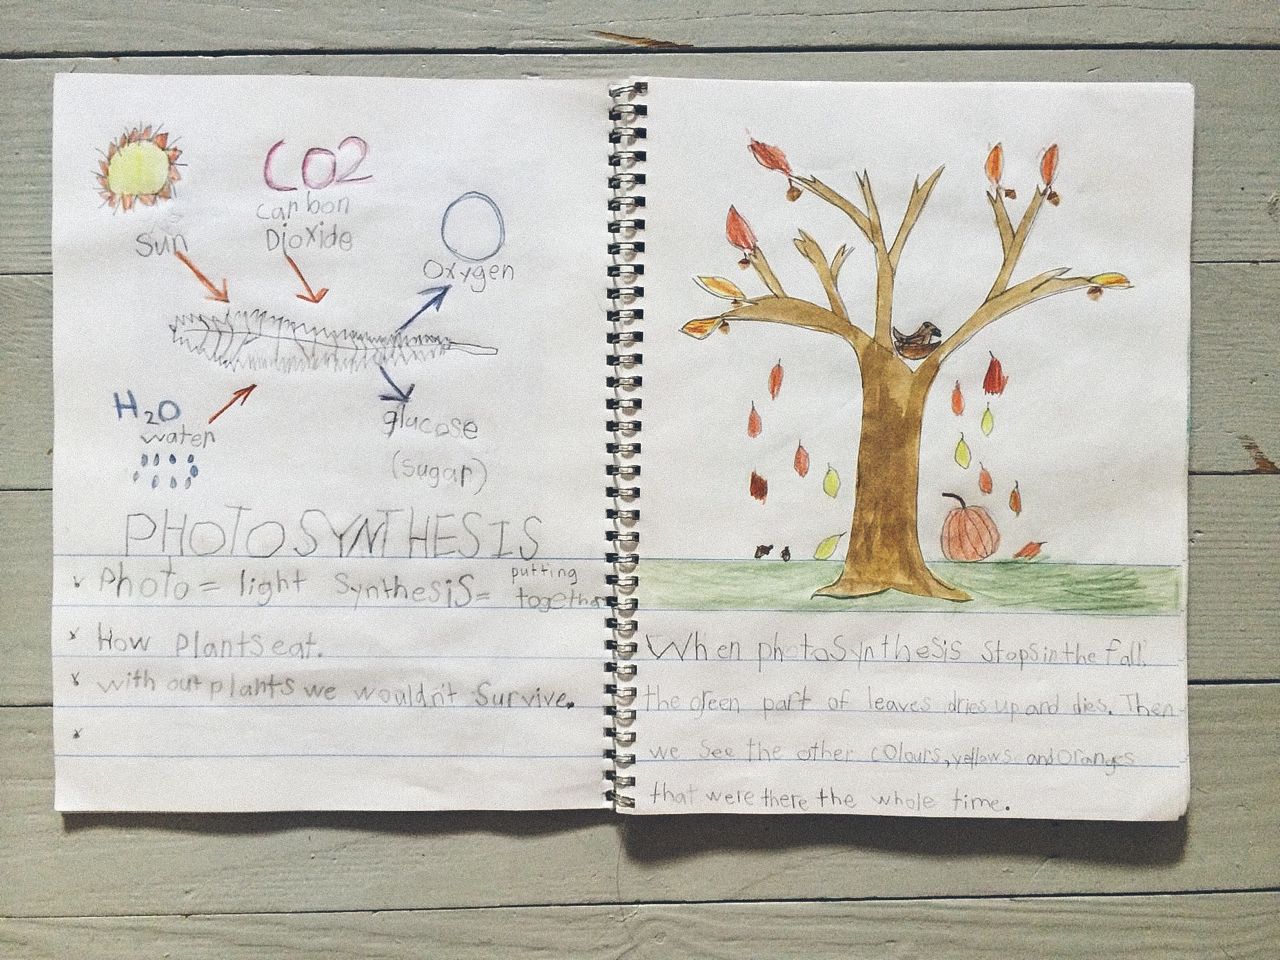 CO2
carbon
Dioxide
Sun
Oxygen
H2O
water
glucose
(sugar)
PHOTOSYNTHESIS
Photo = light Synthesis = putting together
How plants eat.
without plants we wouldn't Survive.
When photosynthesis stops in the fall.
the green part of leaves dries up and dies. Then
we see the other colours, yellows and oranges
that were there the whole time.